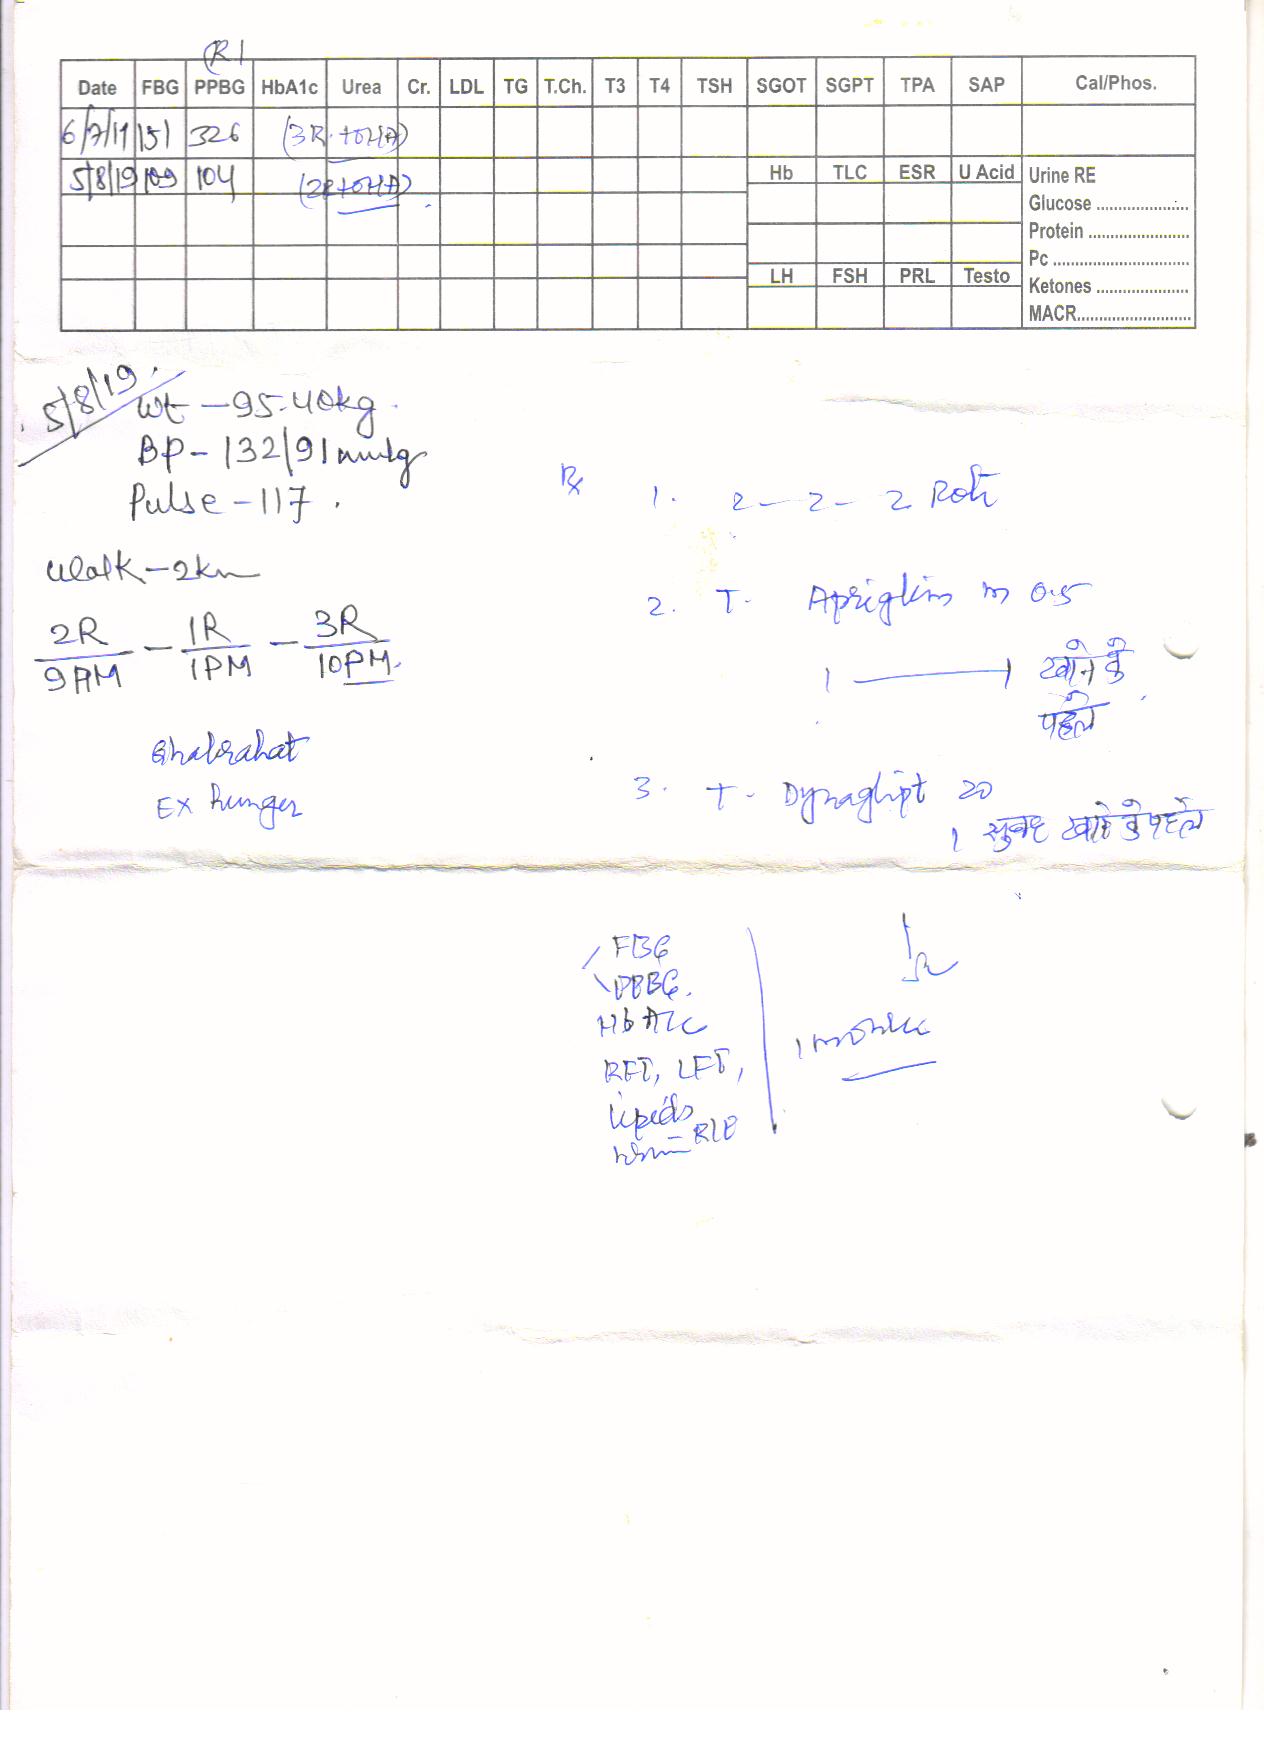 (R)
Date FBG PPBG HbA1c Urea Cr. LDL TG T.Ch. T3 T4 TSH SGOT SGPT TPA SAP Cal/Phos.
6/7/19 151 326 (3R + OHA)
5/8/19 109 104 (2R + OHA)
Hb TLC ESR U Acid Urine RE
Glucose ....................
Protein ......................
Pc .............................
LH FSH PRL Testo
Ketones ....................
MACR.........................
5/8/19
Wt - 95.40kg
BP - 132/91 mmHg
Pulse - 117
Walk - 2km
2R - 1R - 3R
9AM 1PM 10PM
Ghabrahat
EX hunger
Rx
1. 2 - 2 - 2 Roti
2. T. Apriglim m 0.5
1 ——— 1 खाने के
पहले
3. T. Dynaglipt 20
1 सुबह खाने के पहले
FBG
PPBG.
HbA1c
RFT, LFT,
Lipids
Urine - R/E
1 month